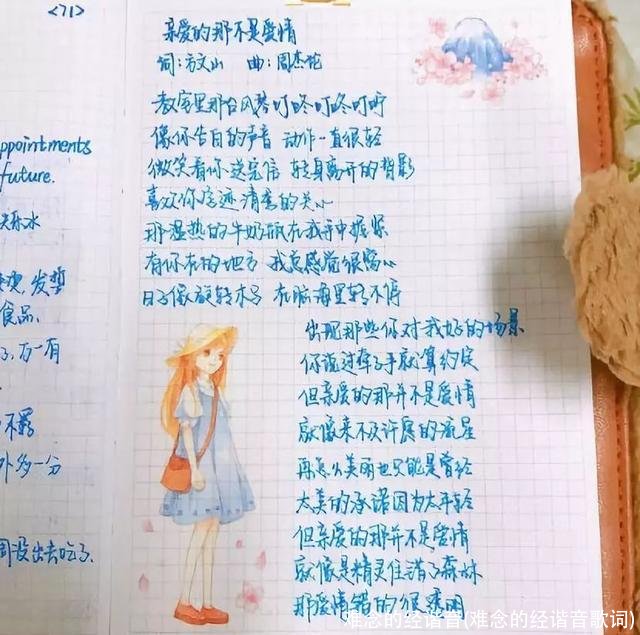 <71>
ppointments
future.
食品.
了,万一有
外多一分
周没出去吃了.
亲爱的那不是爱情
词:方文山 曲:周杰伦
教室里那台风琴叮咚叮咚叮咛
像你告白的声音 动作一直很轻
微笑看你送完信 转身离开的背影
喜欢你字迹清秀的关心
那温热的牛奶瓶在我手中握紧
有你在的地方 我总感觉很窝心
日子像旋转木马 在脑海里转不停
出现那些你对我好的场景
你说过牵了手就算约定
但亲爱的那并不是爱情
就像来不及许愿的流星
再怎么美丽也只能是曾经
太美的承诺因为太年轻
但亲爱的那并不是爱情
就像是精灵住错了森林
那爱情错的很透明
难念的经谐音(难念的经谐音歌词)